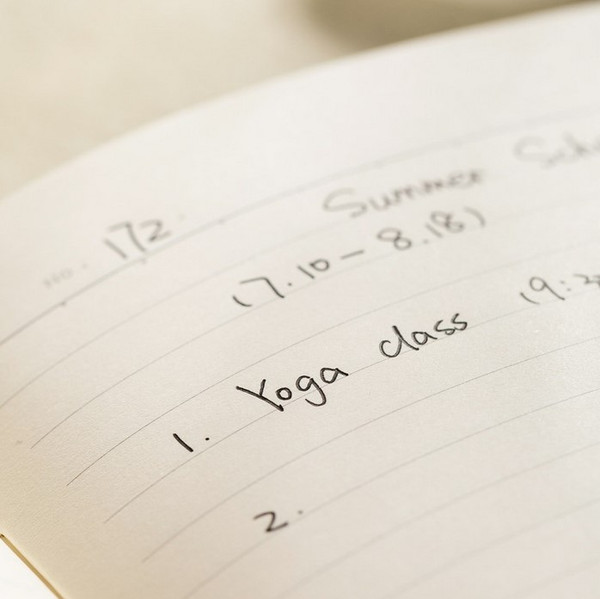 No. 172
Summer Sch
(7.10 - 8.18)
1. Yoga class (9:3
2.